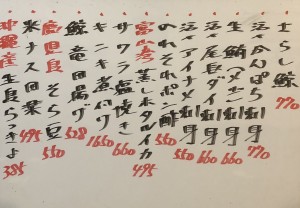 さらし鯨 770
活〆かんぱち刺身 770
生鮪メバチ刺身 660
活〆尾長ダイ刺身 660
活〆アイナメ刺身 550
のれそれポン酢 550
富山湾 蒸しホタルイカ 495
サワラ塩焼き 660
キンキ煮付け 1650
鯨竜田揚げ
そら豆 550
米ナス田楽 495
沖縄産 生島らっきょ 385